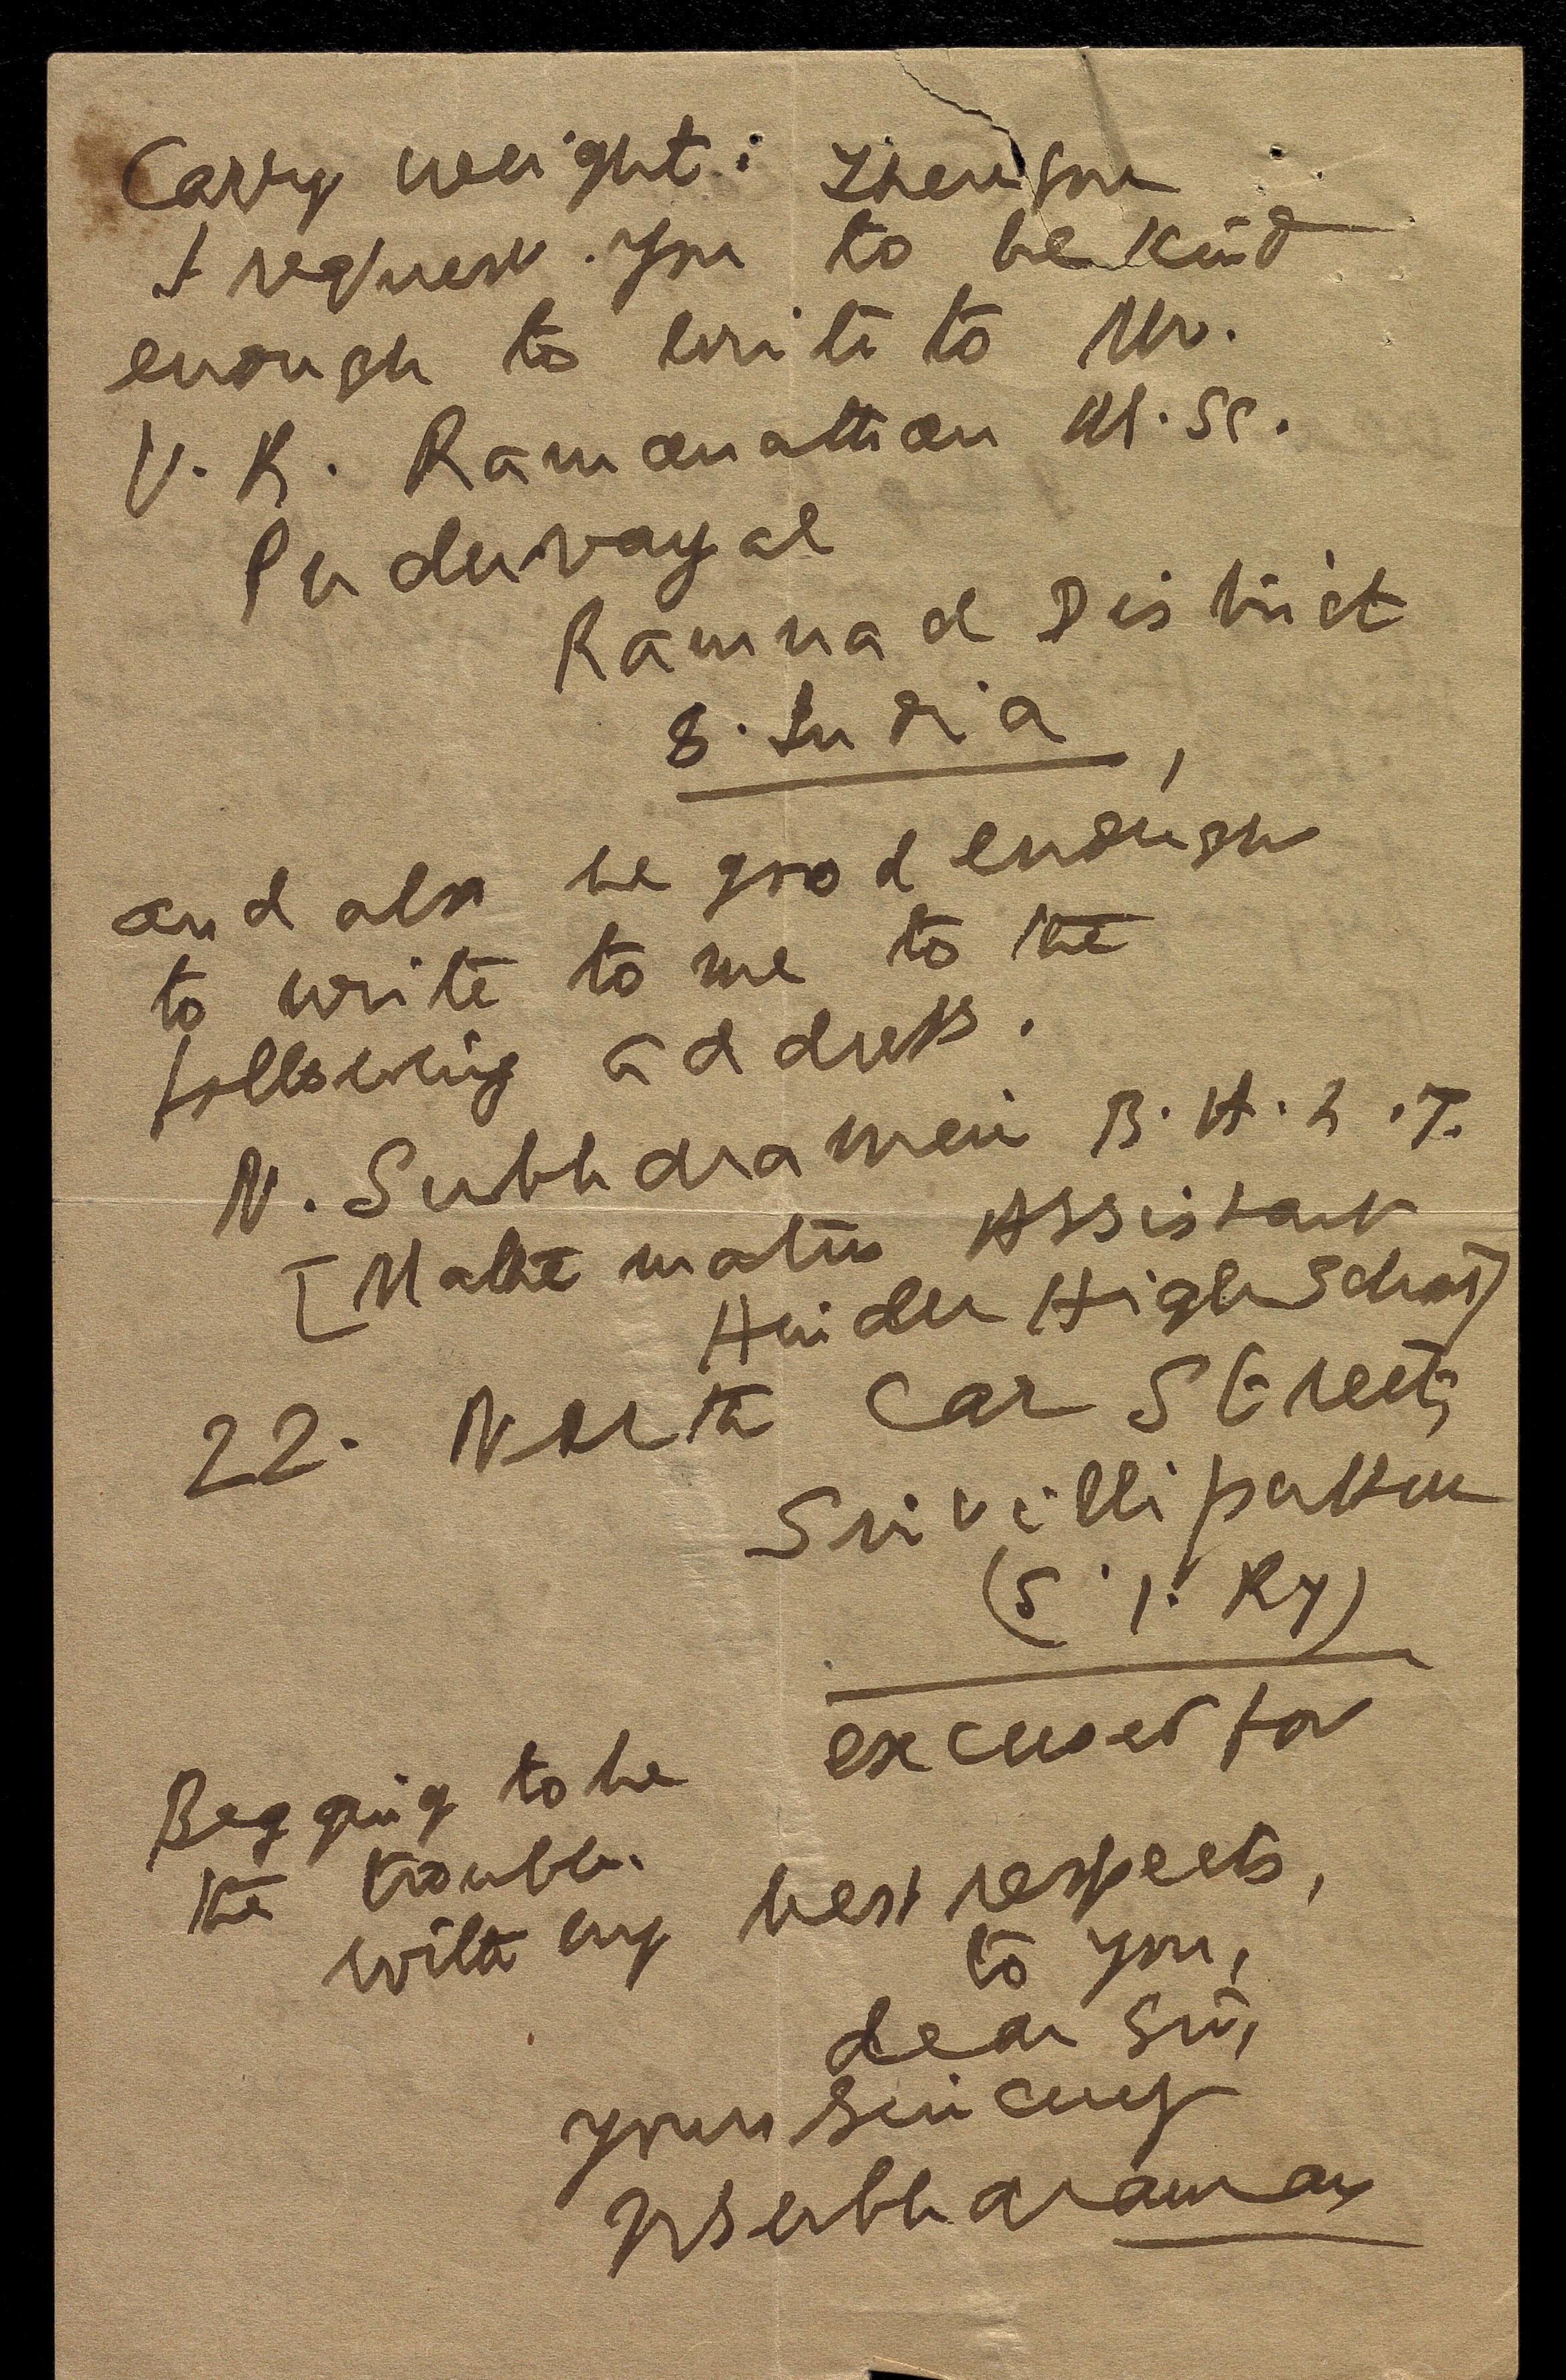 Carry weight: Therefore
I request you to be kind
enough to write to Mr.
V. R. Ramanathan M. Sc.
Puduvayal
Ramnad District
S. India,
and also be good enough
to write to me to the
following address.
N. Subbaramani B. A. L. T.
[Mathematics Assistant
Hindu High School]
22. North Car Street,
Srivilliputtur
(S. I. Ry)
Begging to be excused for
the trouble.
with my best respects,
to you,
dear Sir,
yours sincerely
N Subbaraman